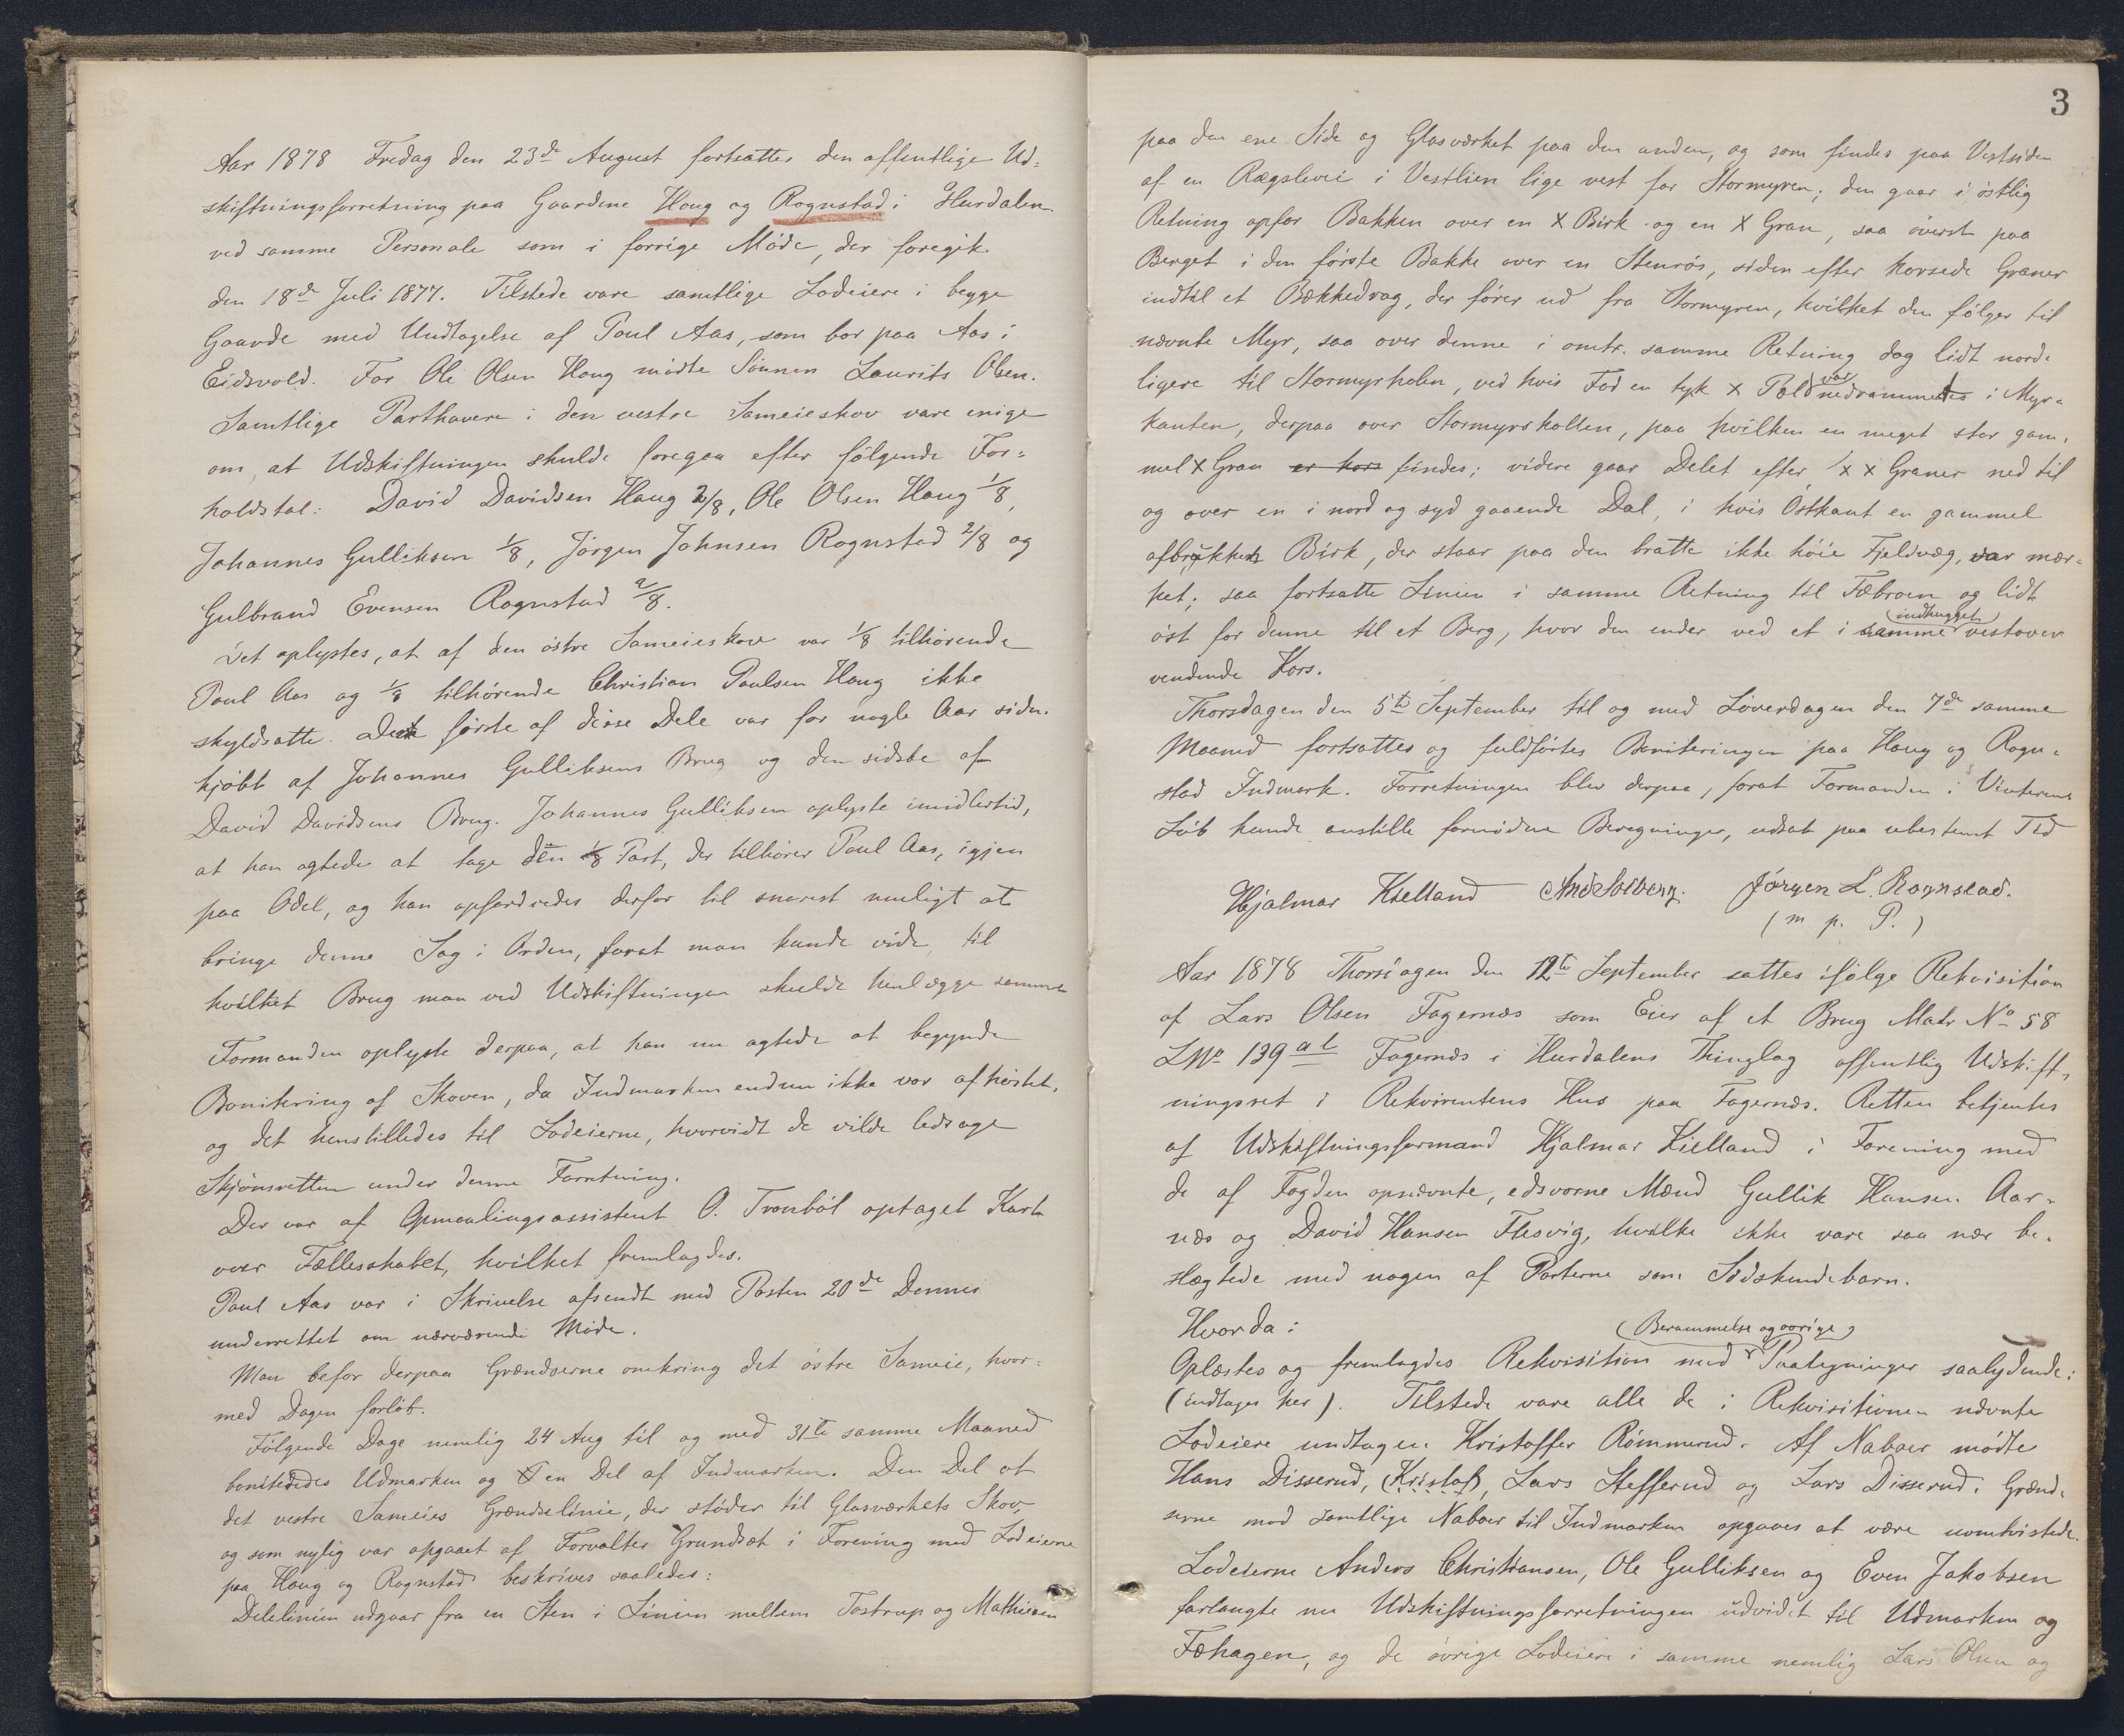 Aar 1878 Fredag den 23de August fortsattes den offentlige Ud-
skiftningsforretning paa Gaardene Houg og Rognstad i Hurdalen
ved samme Personale som i forrige Møde, der foregik
den 18de Juli 1877. Tilstede vare samtlige Lodeiere i begge
Gaarde med Undtagelse af Poul Aas, som bor paa Aas i
Eidsvold. For Ole Olsen Houg mødte Sønnen Laurits Olsen.
Samtlige Parthavere i den vestre Sameieskov vare enige
om, at Udskiftningen skulde foregaa efter følgende For-
holdstal: David Davidsen Haug 2/8, Ole Olsen Haug 1/8,
Johannes Gulliksen 1/8, Jørgen Johnsen Rognstad 2/8 og
Gulbrand Evensen Rognstad 2/8.
Det oplystes, at af den østre Sameieskov var 1/8 tilhørende
Poul Aas og 1/8 tilhørende Christian Poulsen Houg ikke
skyldsatte. Den første af disse Dele var for nogle Aar siden
kjøbt af Johannes Gulliksens Brug og den sidste af
David Davidsens Brug. Johannes Gulliksen oplyste imidlertid,
at han agtede at tage den 1/8 Part, der tilhører Poul Aas, igjen
paa Odel, og han opfordredes derfor til snarest muligt at
bringe denne Sag i Orden, forat man kunde vide, til
hvilket Brug man ved Udskiftningen skulde henlægge samme
Formanden oplyste derpaa, at han nu agtede at begynde
Bonitering af Skoven, da Indmarken endnu ikke var afhøstet,
og det henstilledes til Lodeierne, hvorvidt de vilde ledsage
Skjønsretten under denne Forretning.
Der var af Opmaalingsassistent O. Tronbøl optaget Kart
over Fællesskabet, hvilket fremlagdes.
Poul Aas var i Skrivelse afsendt med Posten 20de Dennes
underrettet om nærværende Møde.
Man befor derpaa Grændserne omkring det østre Sameie, hvor-
med Dagen forløb.
Følgende Dage nemlig 24 Aug til og med 31te samme Maaned
boniteredes Udmarken og en Del af Indmarken. Den Del af
det vestre Sameies Grændselinie, der støder til Glasværkets Skov,
og som nylig var opgaaet af Forvalter Grundset i Forening med Lodeierne
paa Houg og Rognstad beskrives saaledes:
Delelinien udgaar fra en Sten i Linien mellem Tostrup og Mathiesen
3
paa den ene Side og Glasværket paa den anden, og som findes paa Vestsiden
af en Rægslevei i Vestlien lige vest for Stormyren; den gaar i østlig
Retning opfor Bakken over en X Birk og en X Gran, saa øverst paa
Berget i den første Bakke over en Stenrøs, siden efter korsede Graner
indtil et Bækkedrag, der fører ud fra Stormyren, hvilket den følger til
nævnte Myr, saa over denne i omtr. samme Retning dog lidt nord-
ligere til Stormyrholen, ved hvis Fod en tyk X Pæl var nedrammet i Myr-
kanten, derpaa over Stormyrskollen, paa hvilken en meget stor gam-
mel X Gran er kors findes; videre gaar Delet efter X X Graner ned til
og over en i nord og syd gaaende Dal, i hvis Østkant en gammel
afbrukket Birk, der staar paa den bratte ikke høie Fjeldvæg, var mær-
ket; saa fortsatte Linien i samme Retning til Fæbroen og lidt
øst for denne til et Berg, hvor den ender ved et i samme (indhugget) vestover
vendende Kors.
Thorsdagen den 5te September til og med Løverdagen den 7de samme
Maaned fortsattes og fuldførtes Boniteringen paa Houg og Rogn-
stad Indmark. Forretningen blev derpaa, forat Formanden i Vinterens
Løb kunde anstille fornødne Beregninger, udsat paa ubestemt Tid
Hjalmar Kielland And Solberg. Jørgen L. Rognstad.
(m p. P.)
Aar 1878 Thorsdagen den 12te September sattes ifølge Rekvisition
af Lars Olsen Fagernæs som Eier af et Brug Matr No 58
LNo 139 a b Fagernæs i Hurdalens Thinglag offentlig Udskift-
ningsret i Rekvirentens Hus paa Fagernæs. Retten betjentes
af Udskiftningsformand Hjalmar Kielland i Forening med
de af Fogden opnævnte, edsvorne Mænd Gullik Hansen Aar-
næs og David Hansen Flesvig, hvilke ikke vare saa nær be-
slægtede med nogen af Parterne som Sødskendebarn.
Hvorda:
Oplæstes og fremlagdes Rekvisition med (Berammelse og øvrige) Paategninger saalydende:
(indtages her). Tilstede vare alle de i Rekvisitionen nævnte
Lodeiere undtagen Kristoffer Rømmerud. Af Naboer mødte
Hans Disserud, (Kristof), Lars Stefferud og Lars Disserud. Grænd-
serne mod samtlige Naboer til Indmarken opgaves at være uomtvistede.
Lodeierne Anders Christiansen, Ole Gulliksen og Even Jakobsen
forlangte nu Udskiftningsforretningen udvidet til Udmarken og
Fæhagen, og de øvrige Lodeiere i samme nemlig Lars Olsen og